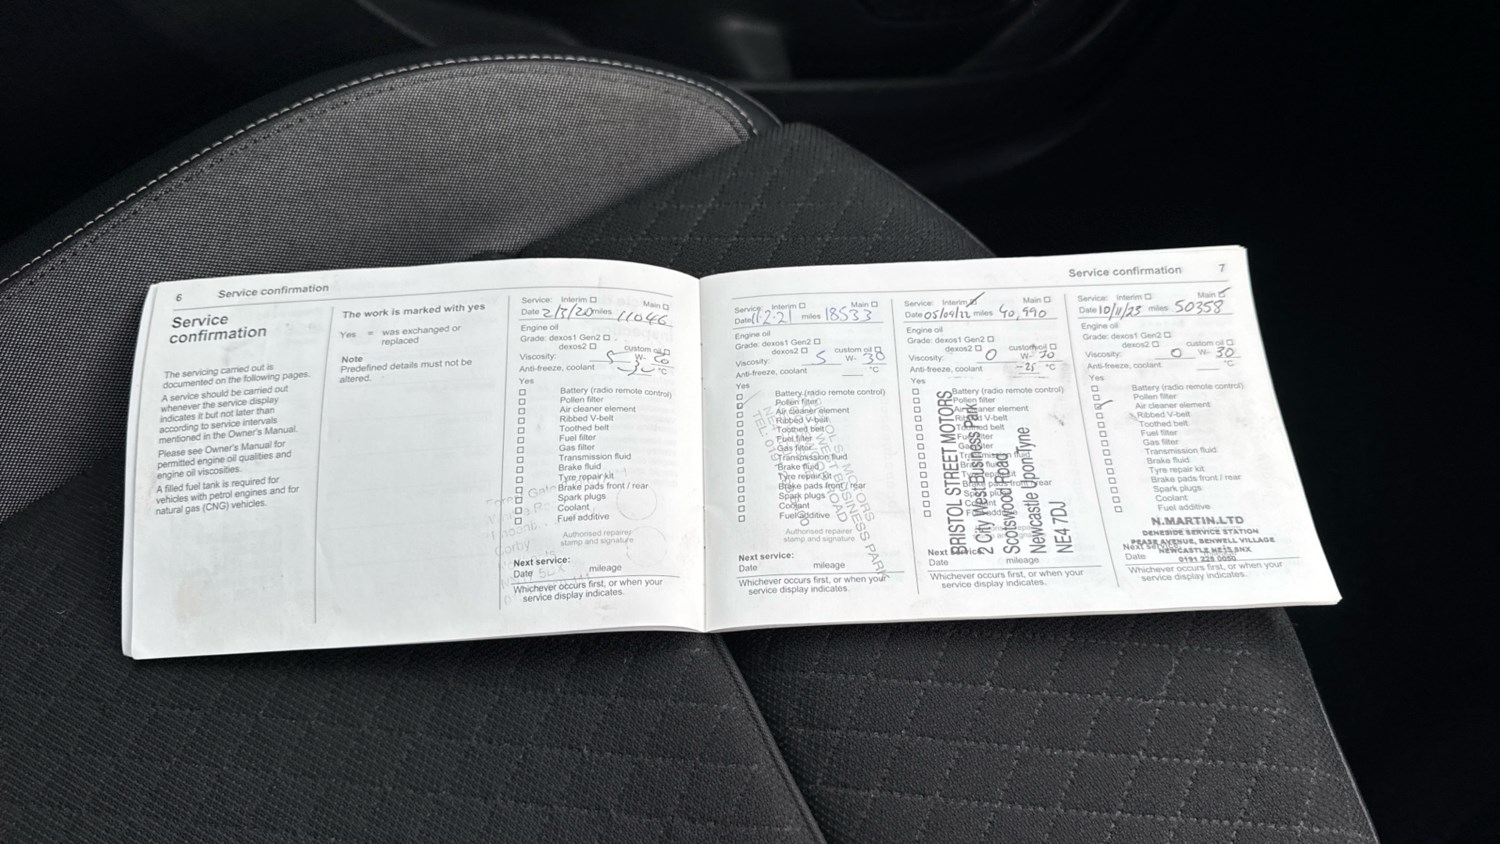 6 Service confirmation
Service
confirmation
The servicing carried out is
documented on the following pages.
A service should be carried out
whenever the service display
indicates it but not later than
according to service intervals
mentioned in the Owner's Manual.
Please see Owner's Manual for
permitted engine oil qualities and
engine oil viscosities.
A filled fuel tank is required for
vehicles with petrol engines and for
natural gas (CNG) vehicles.
The work is marked with yes
Yes = was exchanged or
replaced
Note
Predefined details must not be
altered.
Service: Interim Main
Date 2/3/20 miles 11046
Engine oil
Grade: dexos1 Gen2
dexos2 custom oil
Viscosity: W-
Anti-freeze, coolant °C
Yes
Battery (radio remote control)
Pollen filter
Air cleaner element
Ribbed V-belt
Toothed belt
Fuel filter
Gas filter
Transmission fluid
Brake fluid
Tyre repair kit
Brake pads front / rear
Spark plugs
Coolant
Fuel additive
Corby
Authorised repairer
stamp and signature
Next service:
Date mileage
Whichever occurs first, or when your
service display indicates.
Service confirmation 7
Service: Interim Main
Date 11-2-21 miles 18533
Engine oil
Grade: dexos1 Gen2
dexos2 custom oil
Viscosity: 5 W- 30
Anti-freeze, coolant °C
Yes
Battery (radio remote control)
Pollen filter
Air cleaner element
Ribbed V-belt
Toothed belt
Fuel filter
Gas filter
Transmission fluid
Brake fluid
Tyre repair kit
Brake pads front / rear
Spark plugs
Coolant
Fuel additive
Authorised repairer
stamp and signature
Next service:
Date mileage
Whichever occurs first, or when your
service display indicates.
Service: Interim Main
Date 05/04/22 miles 40,990
Engine oil
Grade: dexos1 Gen2
dexos2 custom oil
Viscosity: 0 W-
Anti-freeze, coolant -25 °C
Yes
Battery (radio remote control)
Pollen filter
Air cleaner element
Ribbed V-belt
Toothed belt
Fuel filter
Gas filter
Transmission fluid
Brake fluid
Tyre repair kit
Brake pads front / rear
BRISTOL STREET MOTORS
2 City West Business Park
Scotswood Road
Newcastle Upon Tyne
NE4 7DJ
Next service:
mileage
Whichever occurs first, or when your
service display indicates.
Service: Interim Main
Date 10/11/23 miles 50358
Engine oil
Grade: dexos1 Gen2
dexos2 custom oil
Viscosity: 0 W- 30
Anti-freeze, coolant °C
Yes
Battery (radio remote control)
Pollen filter
Air cleaner element
Ribbed V-belt
Toothed belt
Fuel filter
Gas filter
Transmission fluid
Brake fluid
Tyre repair kit
Brake pads front / rear
Spark plugs
Coolant
Fuel additive
N.MARTIN.LTD
DENESIDE SERVICE STATION
PEASE AVENUE, BENWELL VILLAGE
NEWCASTLE NE15
0191 228 0050
Next service:
Date
Whichever occurs first, or when your
service display indicates.